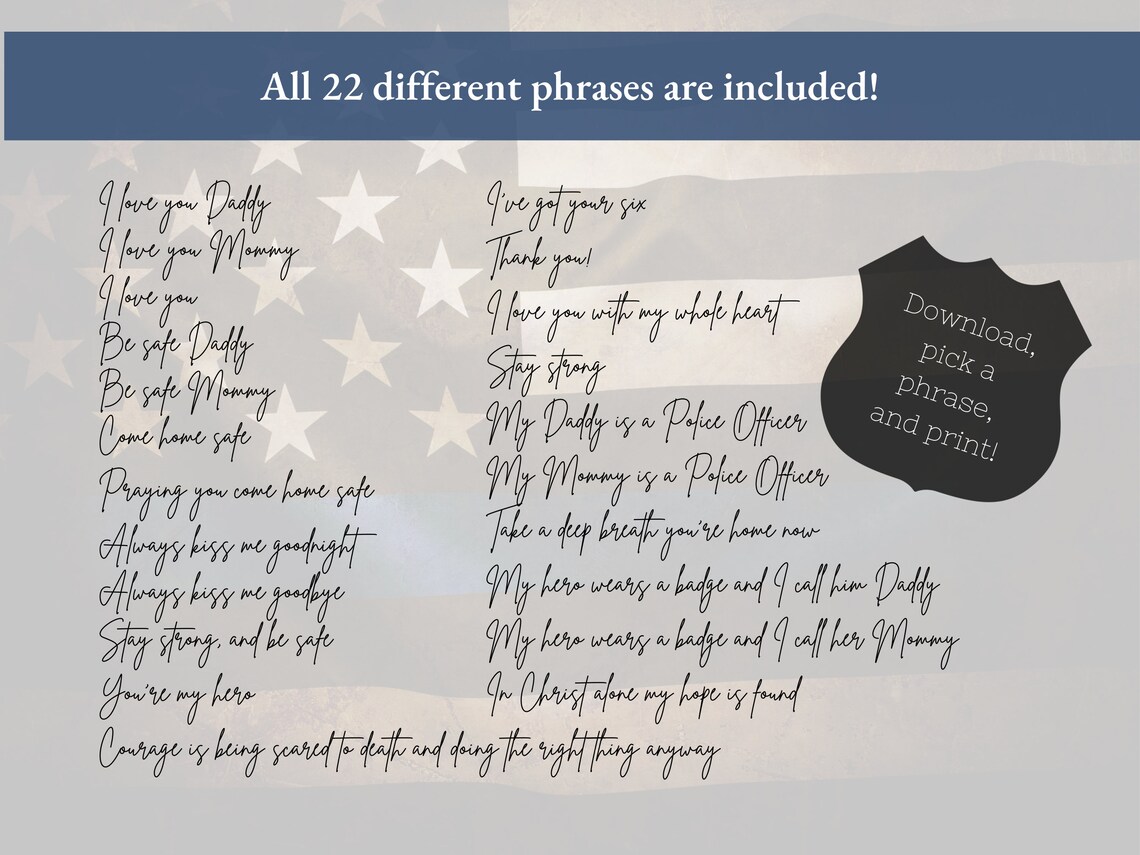 All 22 different phrases are included!
I love you Daddy
I love you Mommy
I love you
Be safe Daddy
Be safe Mommy
Come home safe
Praying you come home safe
Always kiss me goodnight
Always kiss me goodbye
Stay strong, and be safe
You're my hero
Courage is being scared to death and doing the right thing anyway
I've got your six
Thank you!
I love you with my whole heart
Stay strong
My Daddy is a Police Officer
My Mommy is a Police Officer
Take a deep breath you're home now
My hero wears a badge and I call him Daddy
My hero wears a badge and I call her Mommy
In Christ alone my hope is found
Download,
pick a
phrase,
and print!